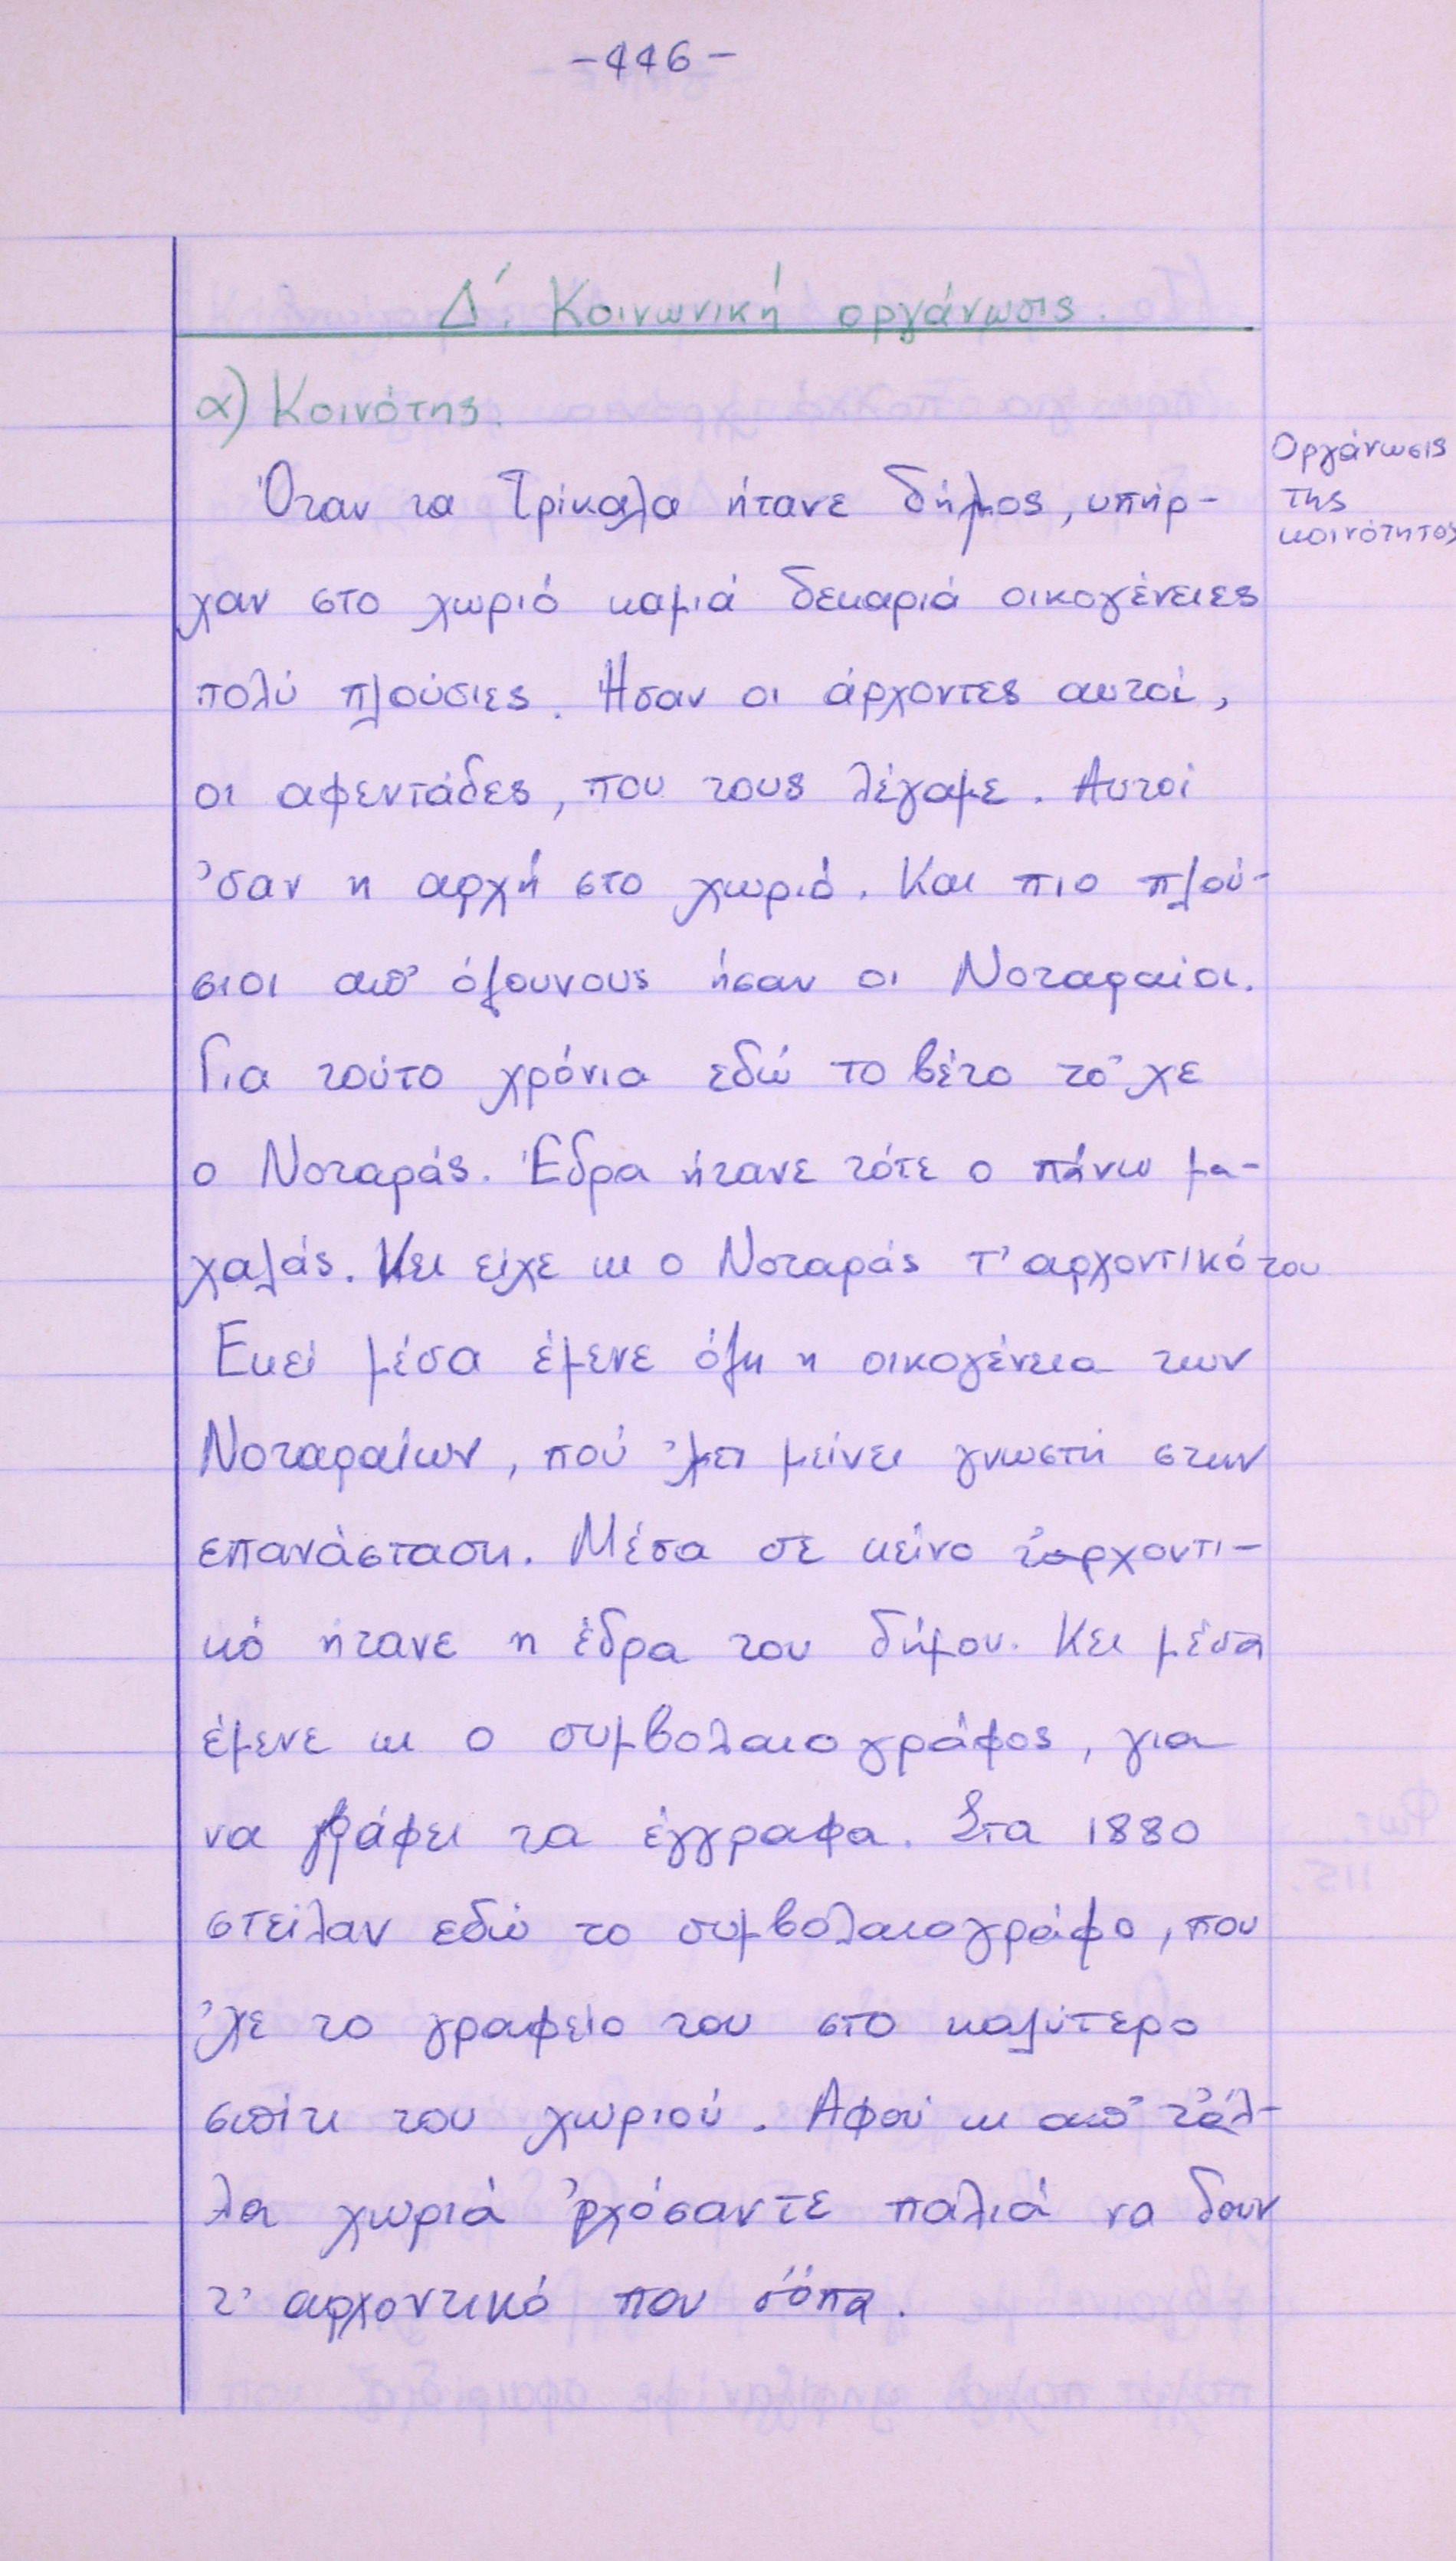 -446-
Δ΄. Κοινωνική οργάνωσις.
α) Κοινότης.
Όταν τα Τρίκαλα ήτανε δήμος, υπήρ-
χαν στο χωριό καμιά δεκαριά οικογένειες
πολύ πλούσιες. Ήσαν οι άρχοντες αυτοί,
οι αφεντάδες, που τους λέγαμε. Αυτοί
'σαν η αρχή στο χωριό. Και πιο πλού-
σιοι απ' όλουνους ήσαν οι Νοταραίοι.
Για τούτο χρόνια εδώ το βέτο το 'χε
ο Νοταράς. Έδρα ήτανε τότε ο πάνω μα-
χαλάς. Κει είχε κι ο Νοταράς τ' αρχοντικό του
Εκεί μέσα έμενε όλη η οικογένεια των
Νοταραίων, πού 'χει μείνει γνωστή στην
επανάσταση. Μέσα σε κείνο τ' αρχοντι-
κό ήτανε η έδρα του δήμου. Κει μέσα
έμενε κι ο συμβολαιογράφος, για
να γράφει τα έγγραφα. Στα 1880
στείλαν εδώ το συμβολαιογράφο, που
'χε το γραφείο του στο καλύτερο
σπίτι του χωριού. Αφού κι απ' τ' άλ-
λα χωριά 'ρχόσαντε παλιά να δουν
τ' αρχοντικό που σόπα.
Οργάνωσις
της
κοινότητος